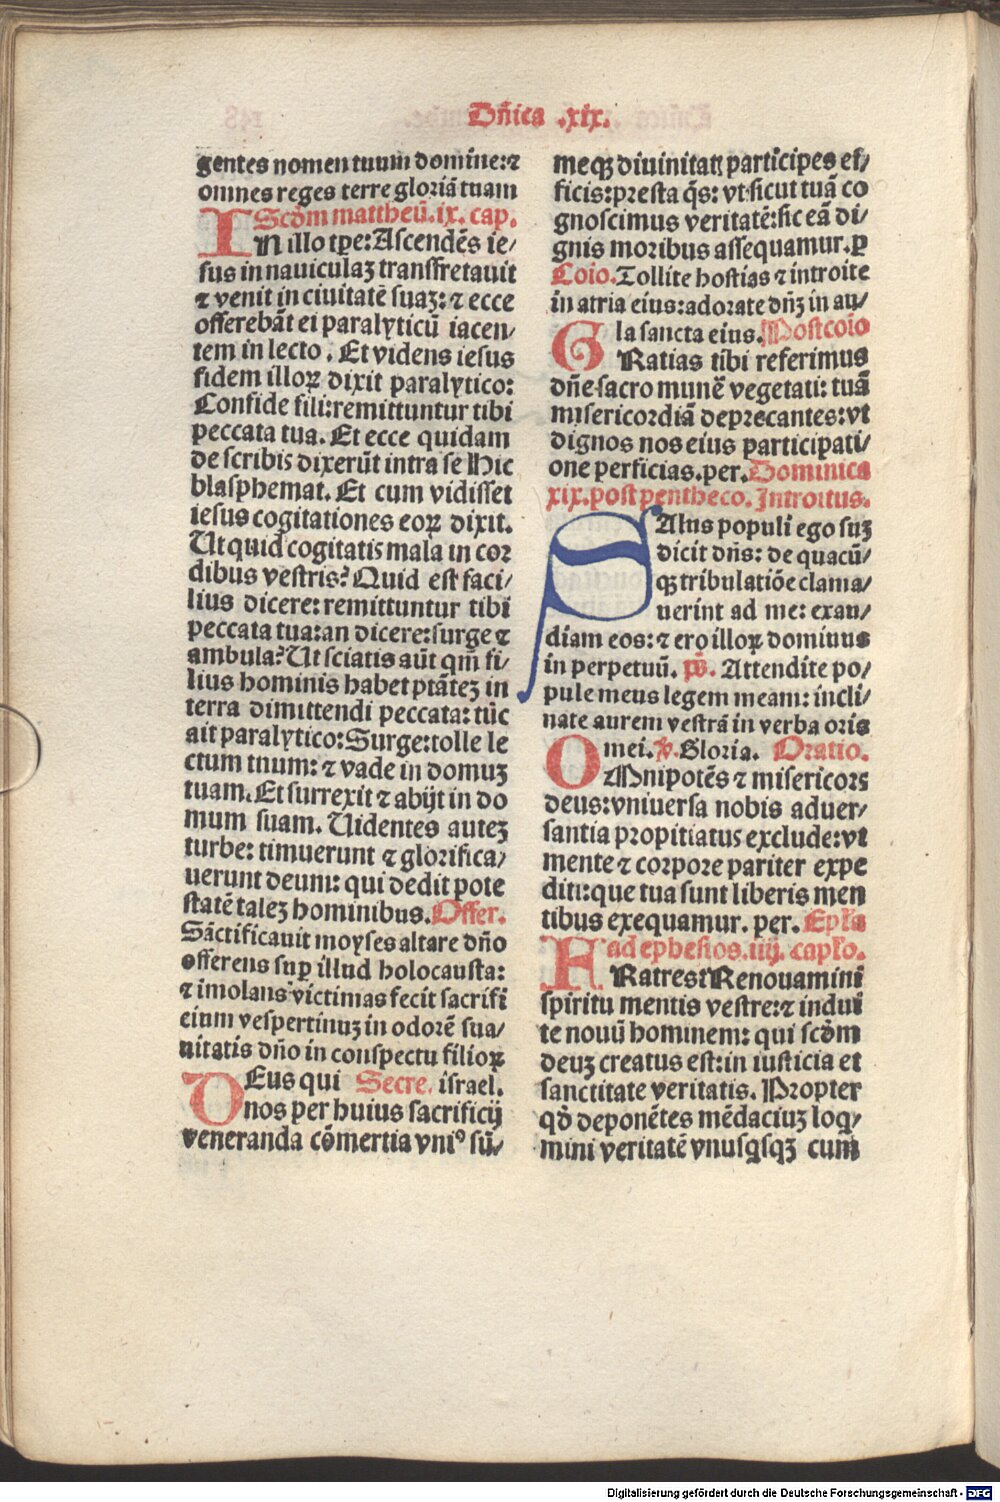 Dñica .xix.
gentes nomen tuum domine:⁊
omnes reges terre gloriã tuam
Scðm mattheũ.ix. cap.
IN illo tpe: Ascendẽs ie/
sus in nauiculaʒ transfretauit
⁊ venit in ciuitatẽ suaʒ: ⁊ ecce
offerebãt ei paralyticũ iacen/
tem in lecto. Et videns iesus
fidem illoꝝ dixit paralytico:
Confide fili:remittuntur tibi
peccata tua. Et ecce quidam
de scribis dixerũt intra se Hic
blasphemat. Et cum vidisset
iesus cogitationes eoꝝ dixit.
Ut quid cogitatis mala in cor
dibus vestris? Quid est faci/
lius dicere: remittuntur tibi
peccata tua:an dicere:surge ⁊
ambula? Ut sciatis aũt qm̃ fi/
lius hominis habet ptãteʒ in
terra dimittendi peccata: tũc
ait paralytico: Surge:tolle le
ctum tuum: ⁊ vade in domuʒ
tuam. Et surrexit ⁊ abijt in do
mum suam. Uidentes auteʒ
turbe: timuerunt ⁊ glorifica/
uerunt deum: qui dedit pote
statẽ taleʒ hominibus. Offer.
Sãctificauit moyses altare dño
offerens sup illud holocausta:
⁊ imolans victimas fecit sacrifi
cium vespertinuʒ in odorẽ sua/
uitatis dño in conspectu filioꝝ
DEus qui Secre. israel.
nos per huius sacrificij
veneranda cõmertia vniꝰ sũ/
meqʒ diuinitatꝭ participes ef/
ficis:presta q̃s: vt sicut tuã co
gnoscimus veritatẽ:sic eã di/
gnis moribus assequamur.ꝑ
Coĩo. Tollite hostias ⁊ introite
in atria eius:adorate dñʒ in au/
la sancta eius. Postcoĩo
GRatias tibi referimus
dñe sacro munẽ vegetati: tuã
misericordiã deprecantes:vt
dignos nos eius participati/
one perficias.per. Dominica
xix.post pentheco. Introitus.
SAlus populi ego suʒ
dicit dñs: de quacũ/
qʒ tribulatiõe clama/
uerint ad me: exau/
diam eos: ⁊ ero illoꝝ dominus
in perpetuũ. p̃s. Attendite po/
pule meus legem meam: incli/
nate aurem vestrã in verba oris
mei. ℣. Gloria. Oratio.
OMnipotẽs ⁊ misericors
deus:vniuersa nobis aduer/
santia propitiatus exclude:vt
mente ⁊ corpore pariter expe
diti:que tua sunt liberis men
tibus exequamur. per. Epl̃a
ad ephesios.iiij. capl̃o.
FRatres: Renouamini
spiritu mentis vestre:⁊ indui
te nouũ hominem: qui scðm
deuʒ creatus est:in iusticia et
sanctitate veritatis. Propter
qð deponẽtes mẽdaciuʒ loq̃/
mini veritatẽ vnusqͥsqʒ cum
Digitalisierung gefördert durch die Deutsche Forschungsgemeinschaft - DFG